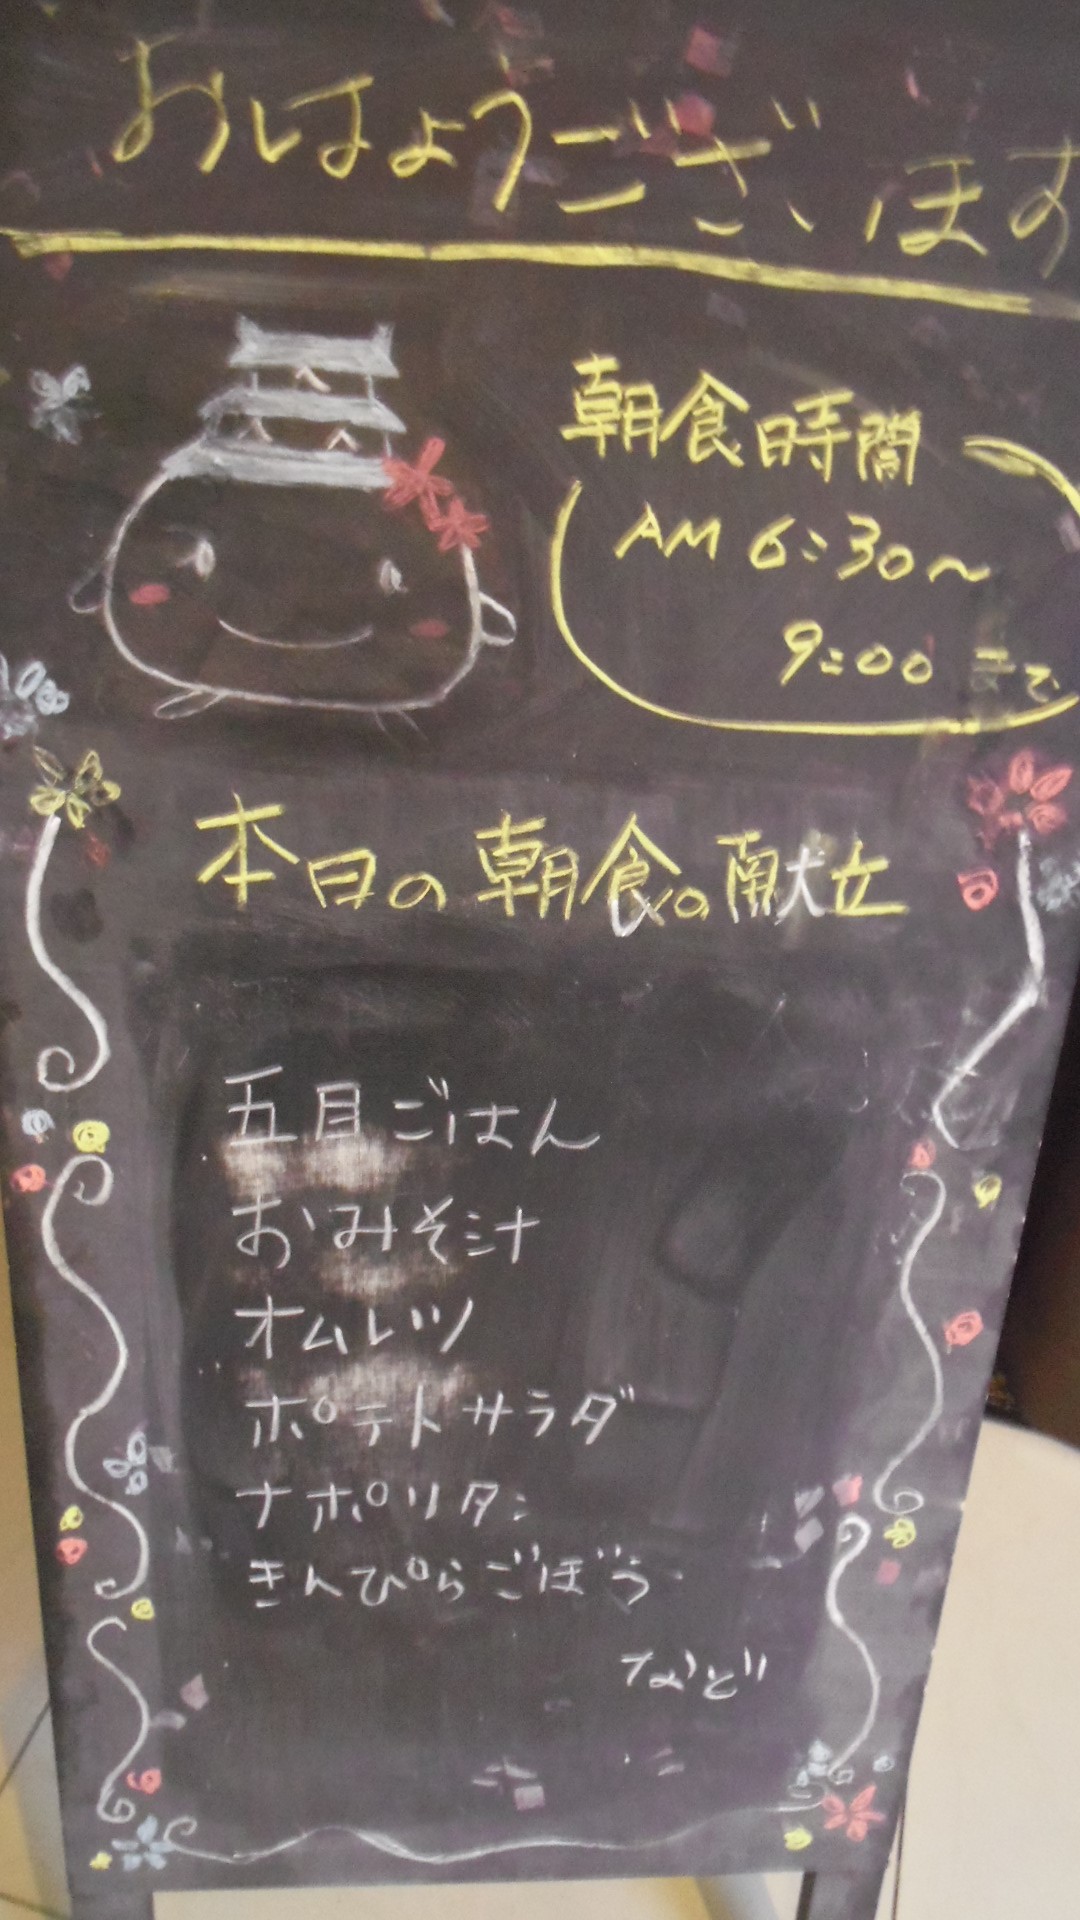 おはようございます
朝食時間
AM 6:30〜
9:00 まで
本日の朝食の献立
五目ごはん
おみそ汁
オムレツ
ポテトサラダ
ナポリタン
きんぴらごぼう
など